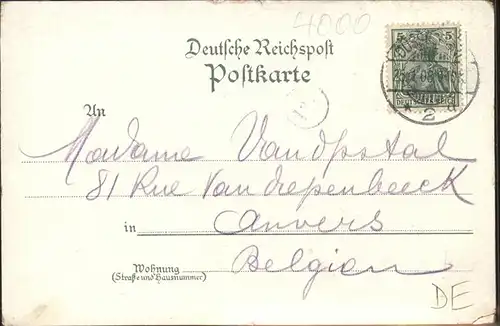 4000
Deutsche Reichspost
Postkarte
5 5
An
Madame Vandpstal
81 Rue Van Diepenbeeck
in Anvers
Belgien
Wohnung
(Straße und Hausnummer)
DE